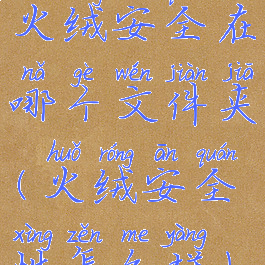 火绒安全在
nǎ gè wén jiàn jiā
哪个文件夹
huǒ róng ān quán
(火绒安全
xìng zěn me yàng
性怎么样)